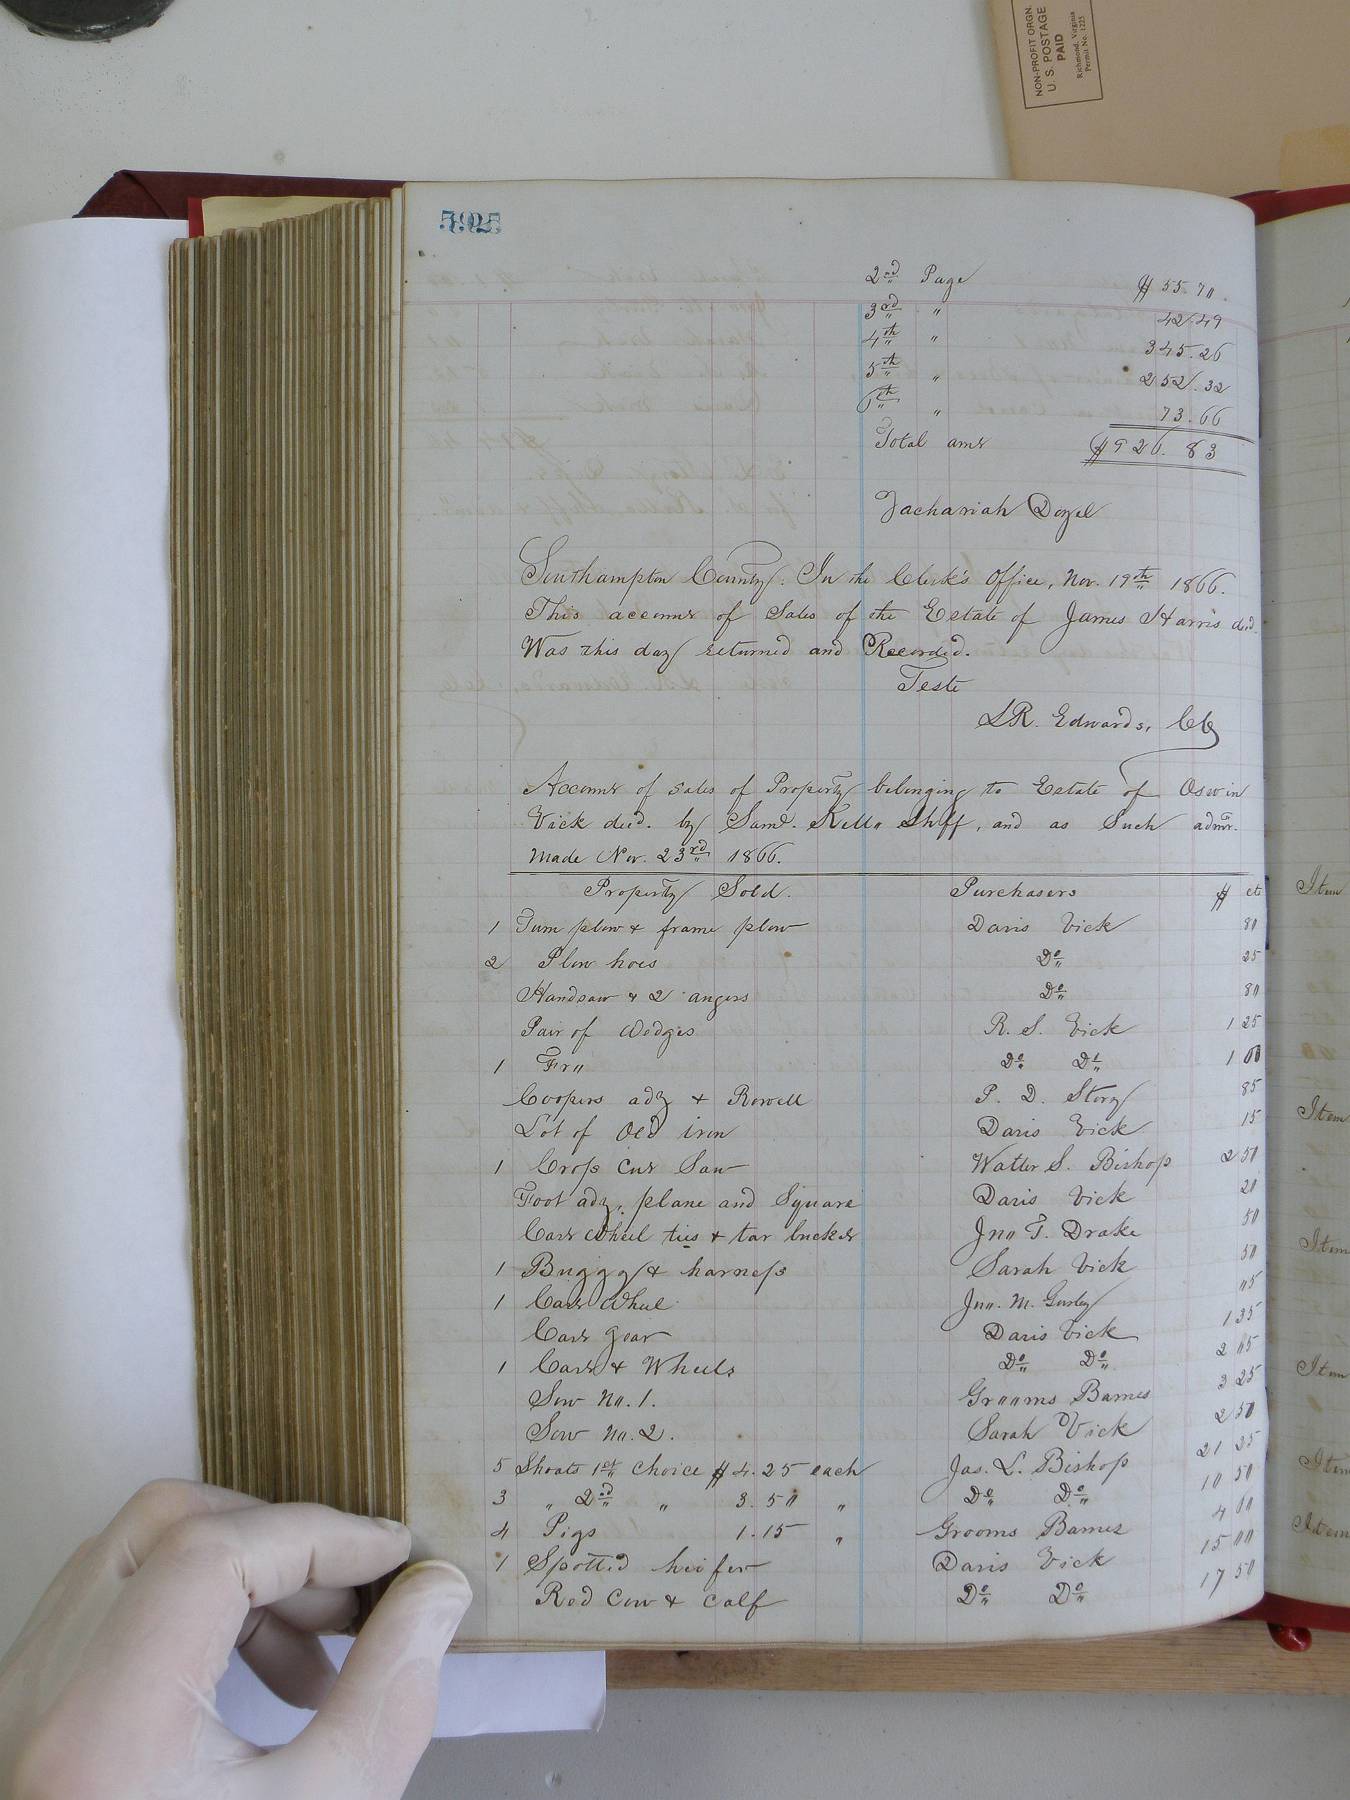 NON-PROFIT ORGN.
U. S. POSTAGE
PAID
Richmond, Virginia
Permit No. 1225
2nd Page $55.70.
3rd " 42.49
4th " 345.26
5th " 252.32
6th " 73.66
Total amt $926.83
Zachariah Doyel
Southampton County: In the Clerk's Office, Nov. 19th 1866.
This account of Sales of the Estate of James Harris decd.
Was this day returned and Recorded.
Teste
L R. Edwards, Clk
Account of sales of Property belonging to Estate of Oswin
Vick decd. by Saml. Kello Shff, and as Such admr.
Made Nov. 23rd 1866.
Property Sold. Purchasers $ cts Item
1 Turn plow & frame plow Davis Vick 80
2 Plow hoes Do 25
Handsaw & 2 augers Do 80
Pair of Wedges R. S. Vick 1 25
1 Fro Do Do 1 00
Coopers adz & Howell P. D. Story 85
Lot of Old iron Davis Vick 15 Item
1 Cross Cut Saw Walter S. Bishop 2 50
Foot adz, plane and Square Davis Vick 20
Cart Wheel ties & tar bucket Jno T. Drake 50
1 Buggy & harness Sarah Vick 50 Item
1 Cart Wheel Jno. M. Gurley 05
Cart gear Davis Vick 1 35
1 Cart & Wheels Do Do 2 05 Item
Sow No. 1. Grooms Barnes 3 25
Sow No. 2. Sarah Vick 2 50
5 Shoats 1st Choice $4.25 each Jas. L. Bishop 21 25 Item
3 " 2nd " 3.50 " Do Do 10 50
4 Pigs 1.15 " Grooms Barnes 4 60 Item
1 Spotted heifer Davis Vick 15 00
Red Cow & Calf Do Do 17 50